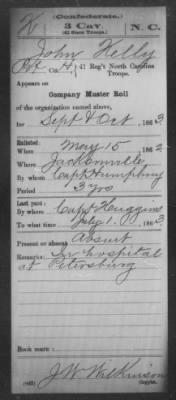 (Confederate.)
K 3 Cav. N. C.
(41 State Troops.)
John Kelly
Pvt, Co. H, 41 Reg't North Carolina
Troops.
Appears on
Company Muster Roll
of the organization named above,
for Sept & Oct, 1863
Enlisted:
When May 15 1862
Where Jacksonville
By whom Capt Humphrey
Period 3 yrs
Last paid:
By whom Capt Huggins
To what time July 1. 1863
Present or absent Absent
Remarks: In hospital
at Petersburg
Book mark:
J. W. Wilkinson
Copyist.